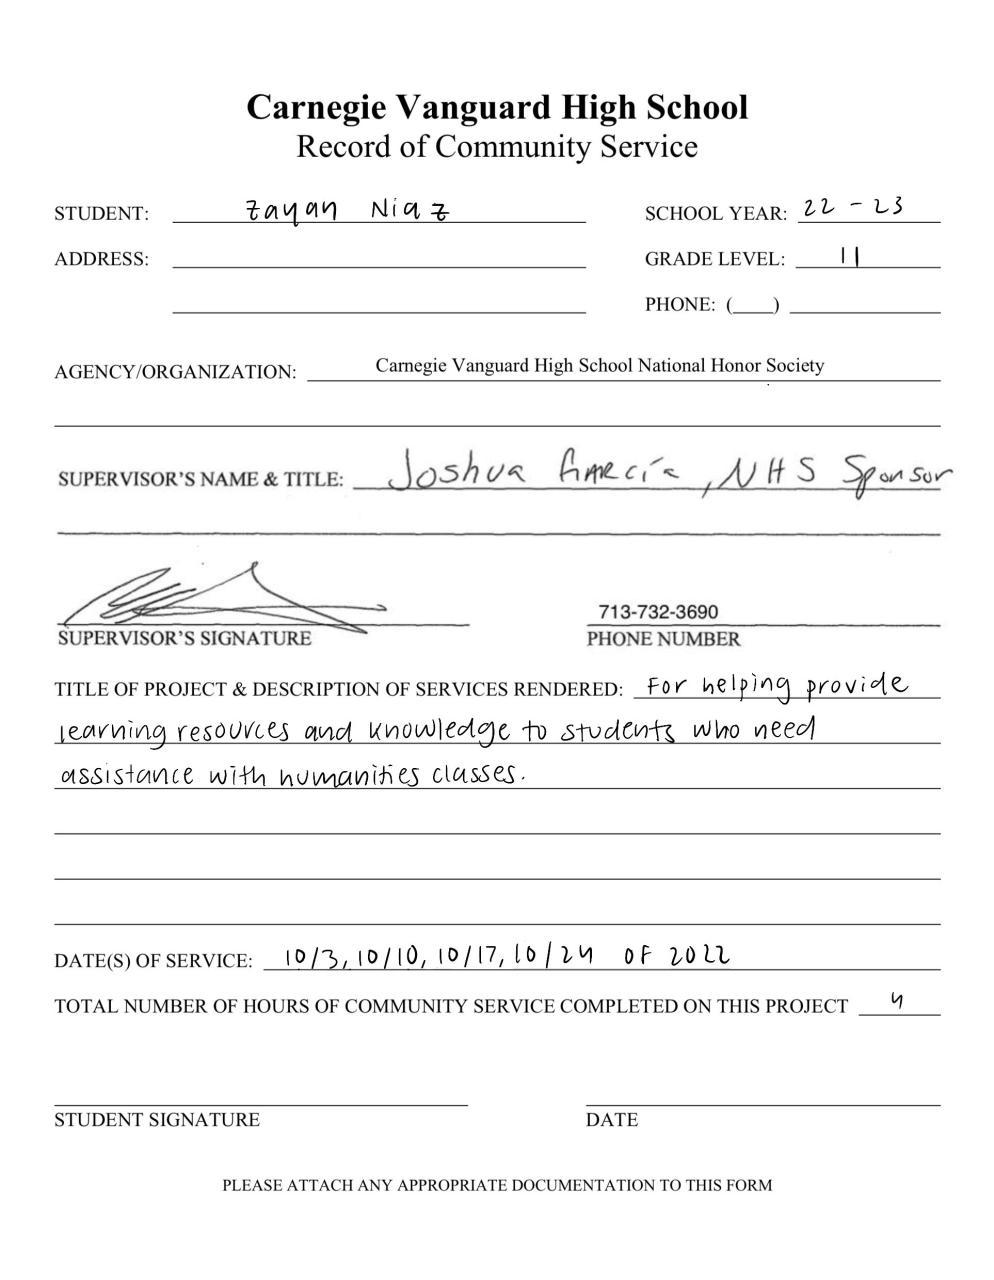 Carnegie Vanguard High School
Record of Community Service
STUDENT: Zayan Niaz SCHOOL YEAR: 22 - 23
ADDRESS: GRADE LEVEL: 11
PHONE: (___)
AGENCY/ORGANIZATION: Carnegie Vanguard High School National Honor Society
SUPERVISOR'S NAME & TITLE: Joshua García, NHS Sponsor
713-732-3690
SUPERVISOR'S SIGNATURE PHONE NUMBER
TITLE OF PROJECT & DESCRIPTION OF SERVICES RENDERED: For helping provide
learning resources and knowledge to students who need
assistance with humanities classes.
DATE(S) OF SERVICE: 10/3, 10/10, 10/17, 10/24 OF 2022
TOTAL NUMBER OF HOURS OF COMMUNITY SERVICE COMPLETED ON THIS PROJECT 4
STUDENT SIGNATURE DATE
PLEASE ATTACH ANY APPROPRIATE DOCUMENTATION TO THIS FORM